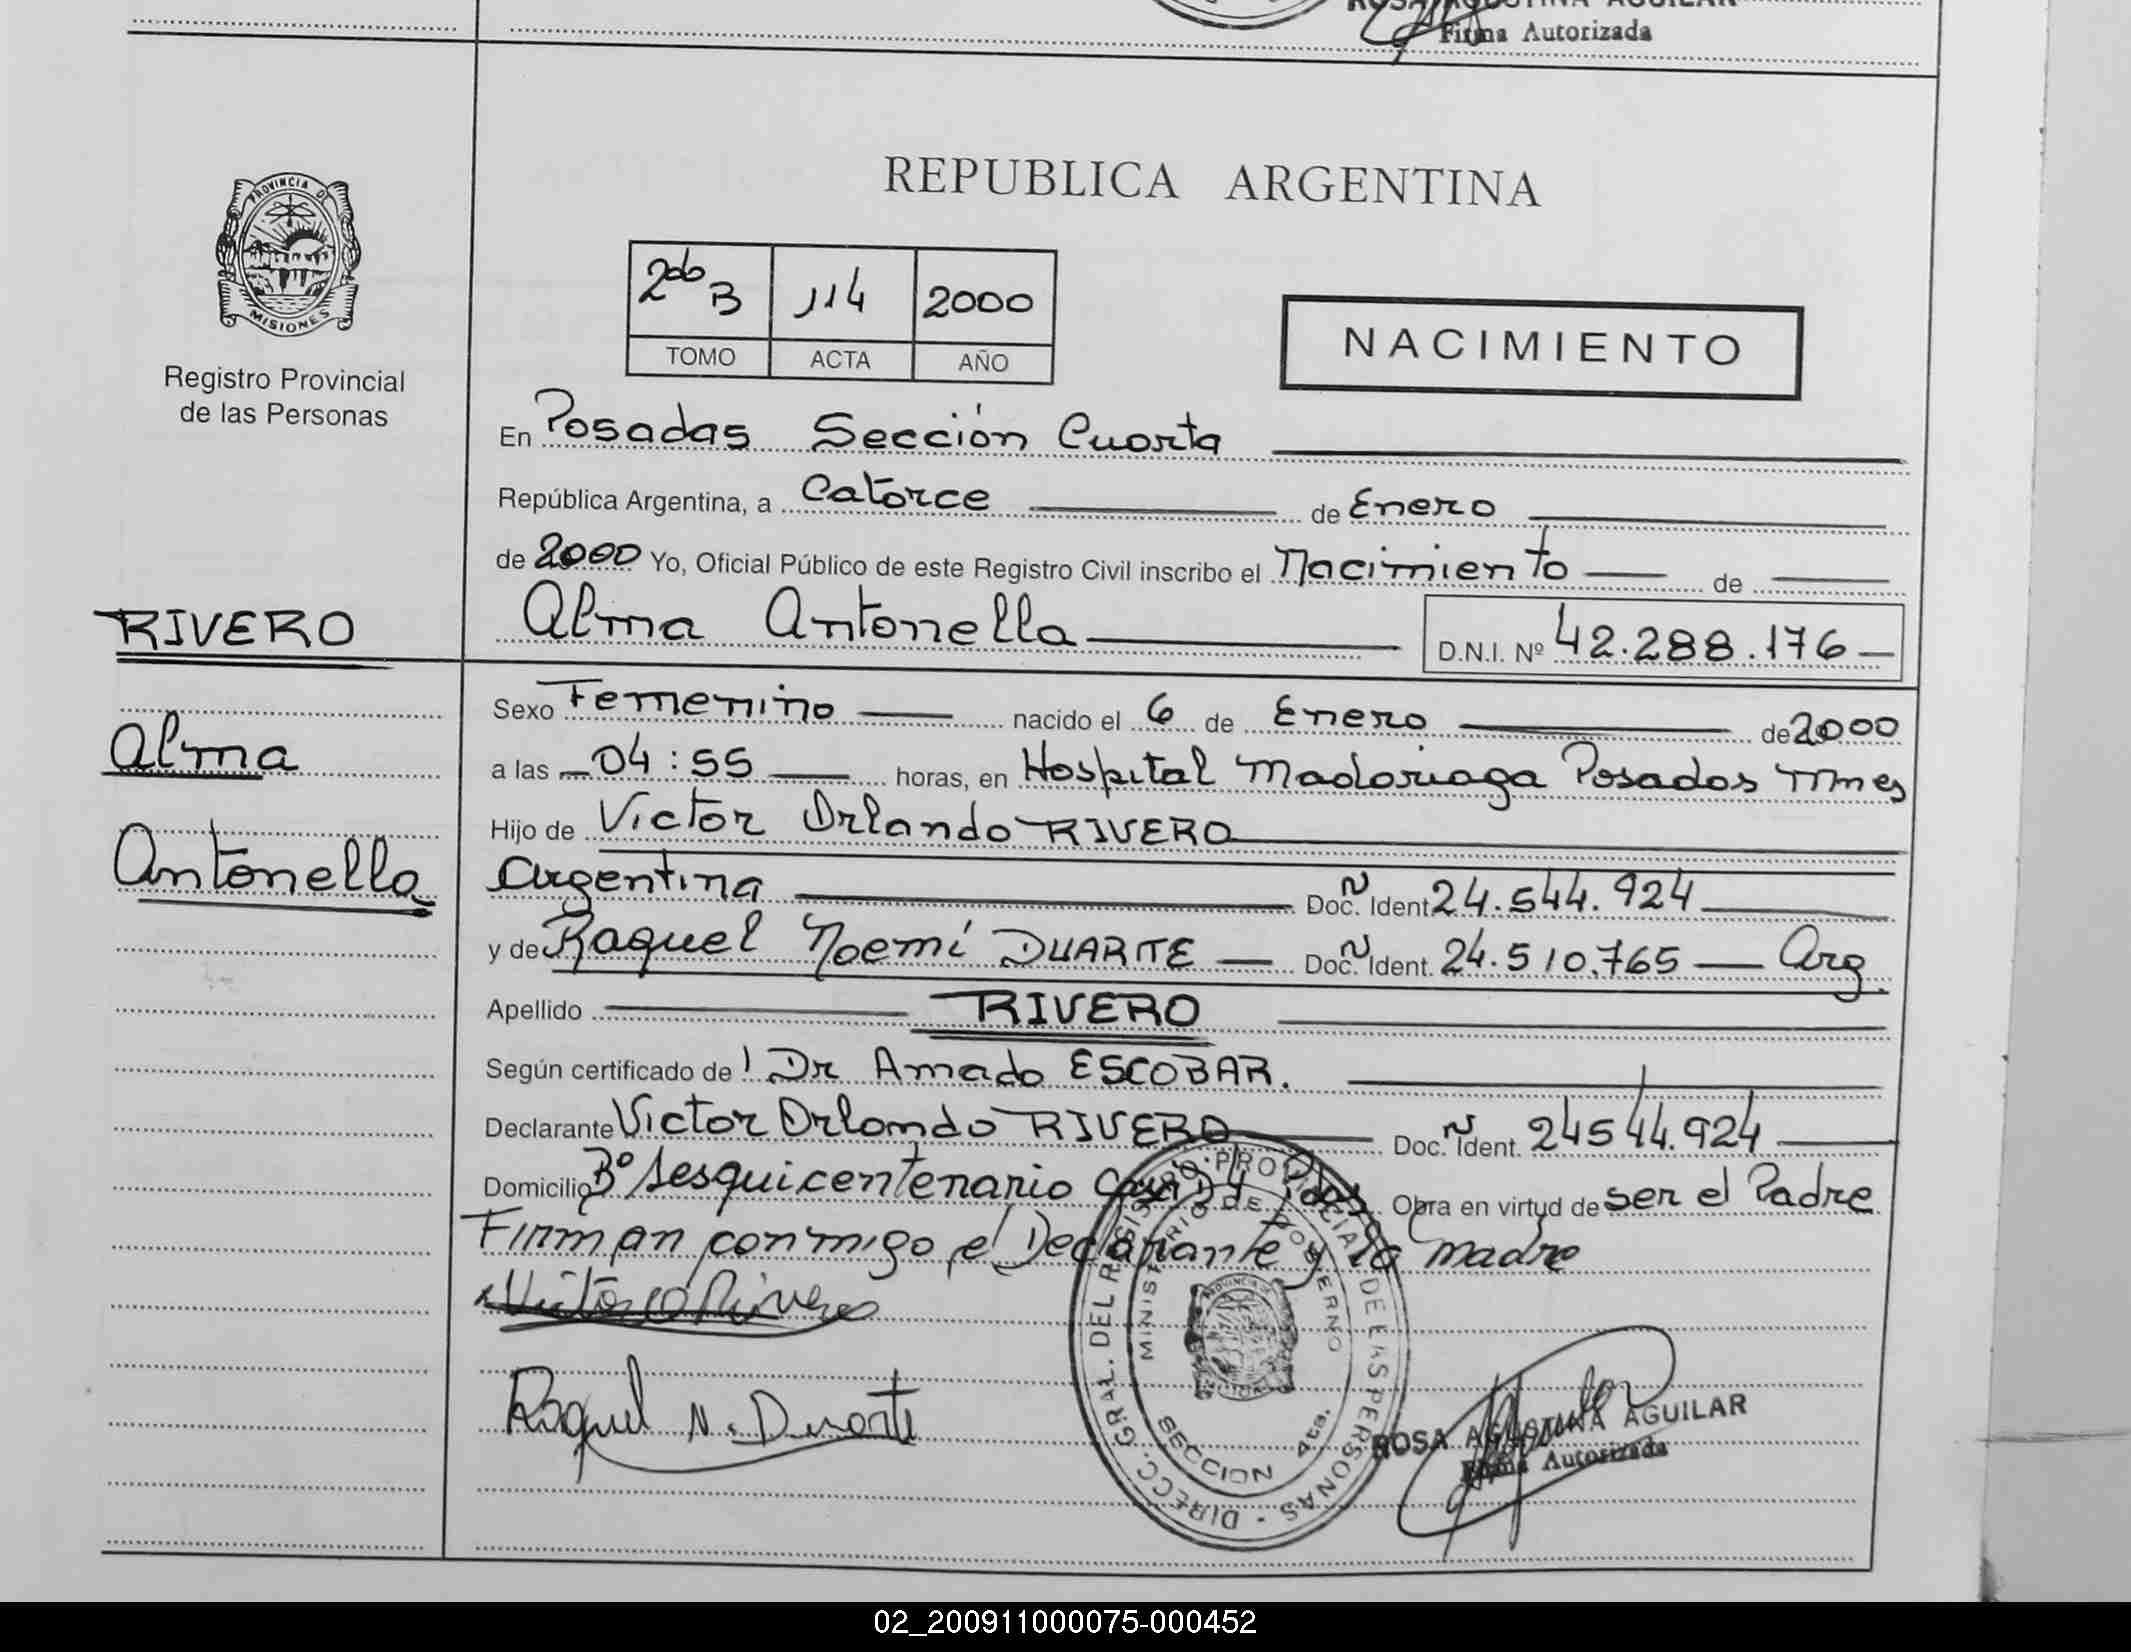 ROSA AGUSTINA AGUILAR
Firma Autorizada
PROVINCIA DE
MISIONES
Registro Provincial
de las Personas
REPUBLICA ARGENTINA
2do B 114 2000
TOMO ACTA AÑO
NACIMIENTO
En Posadas Sección Cuarta
República Argentina, a Catorce de Enero
de 2000 Yo, Oficial Público de este Registro Civil inscribo el Nacimiento de
Alma Antonella D.N.I. Nº 42.288.176
RIVERO
Alma
Antonella
Sexo Femenino nacido el 6 de Enero de 2000
a las 04:55 horas, en Hospital Madariaga Posadas Mnes
Hijo de Victor Orlando RIVERO
Argentina Doc. Ident. 24.544.924
y de Raquel Noemí DUARTE Doc. Ident. 24.510.765 Arg.
Apellido RIVERO
Según certificado de Dr Amado ESCOBAR.
Declarante Victor Orlando RIVERO Doc. Ident. 24544.924
Domicilio Bº Sesquicentenario Casa Obra en virtud de ser el Padre
Firman conmigo el Declarante y la madre
Victor O Rivero
Raquel N. Duarte
DIRECC. GRAL. DEL REGISTRO PROVINCIAL DE LAS PERSONAS
MINISTERIO DE GOBIERNO
SECCION 4ta.
ROSA AGUSTINA AGUILAR
Firma Autorizada
02_200911000075-000452